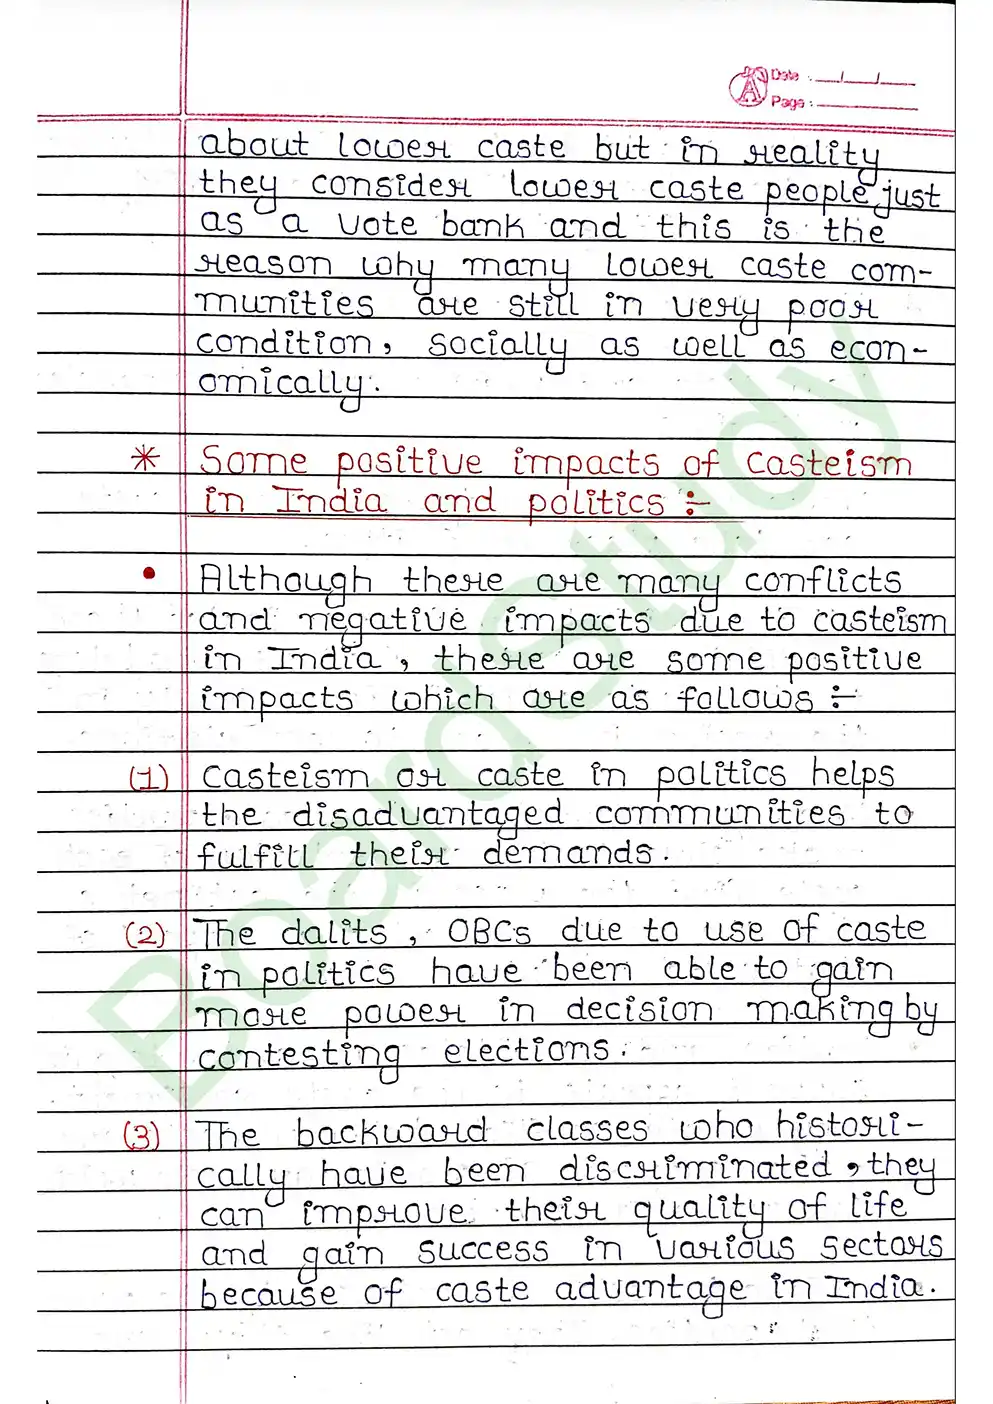 Date : __/__/__
Page : ______
about lower caste but in reality
they consider lower caste people just
as a vote bank and this is the
reason why many lower caste com-
munities are still in very poor
condition, socially as well as econ-
omically.
* Some positive impacts of casteism
in India and politics :-
• Although there are many conflicts
and negative impacts due to casteism
in India, there are some positive
impacts which are as follows :-
(1) Casteism or caste in politics helps
the disadvantaged communities to
fulfill their demands.
(2) The dalits, OBCs due to use of caste
in politics have been able to gain
more power in decision making by
contesting elections.
(3) The backward classes who histori-
cally have been discriminated, they
can improve their quality of life
and gain success in various sectors
because of caste advantage in India.
Board Study